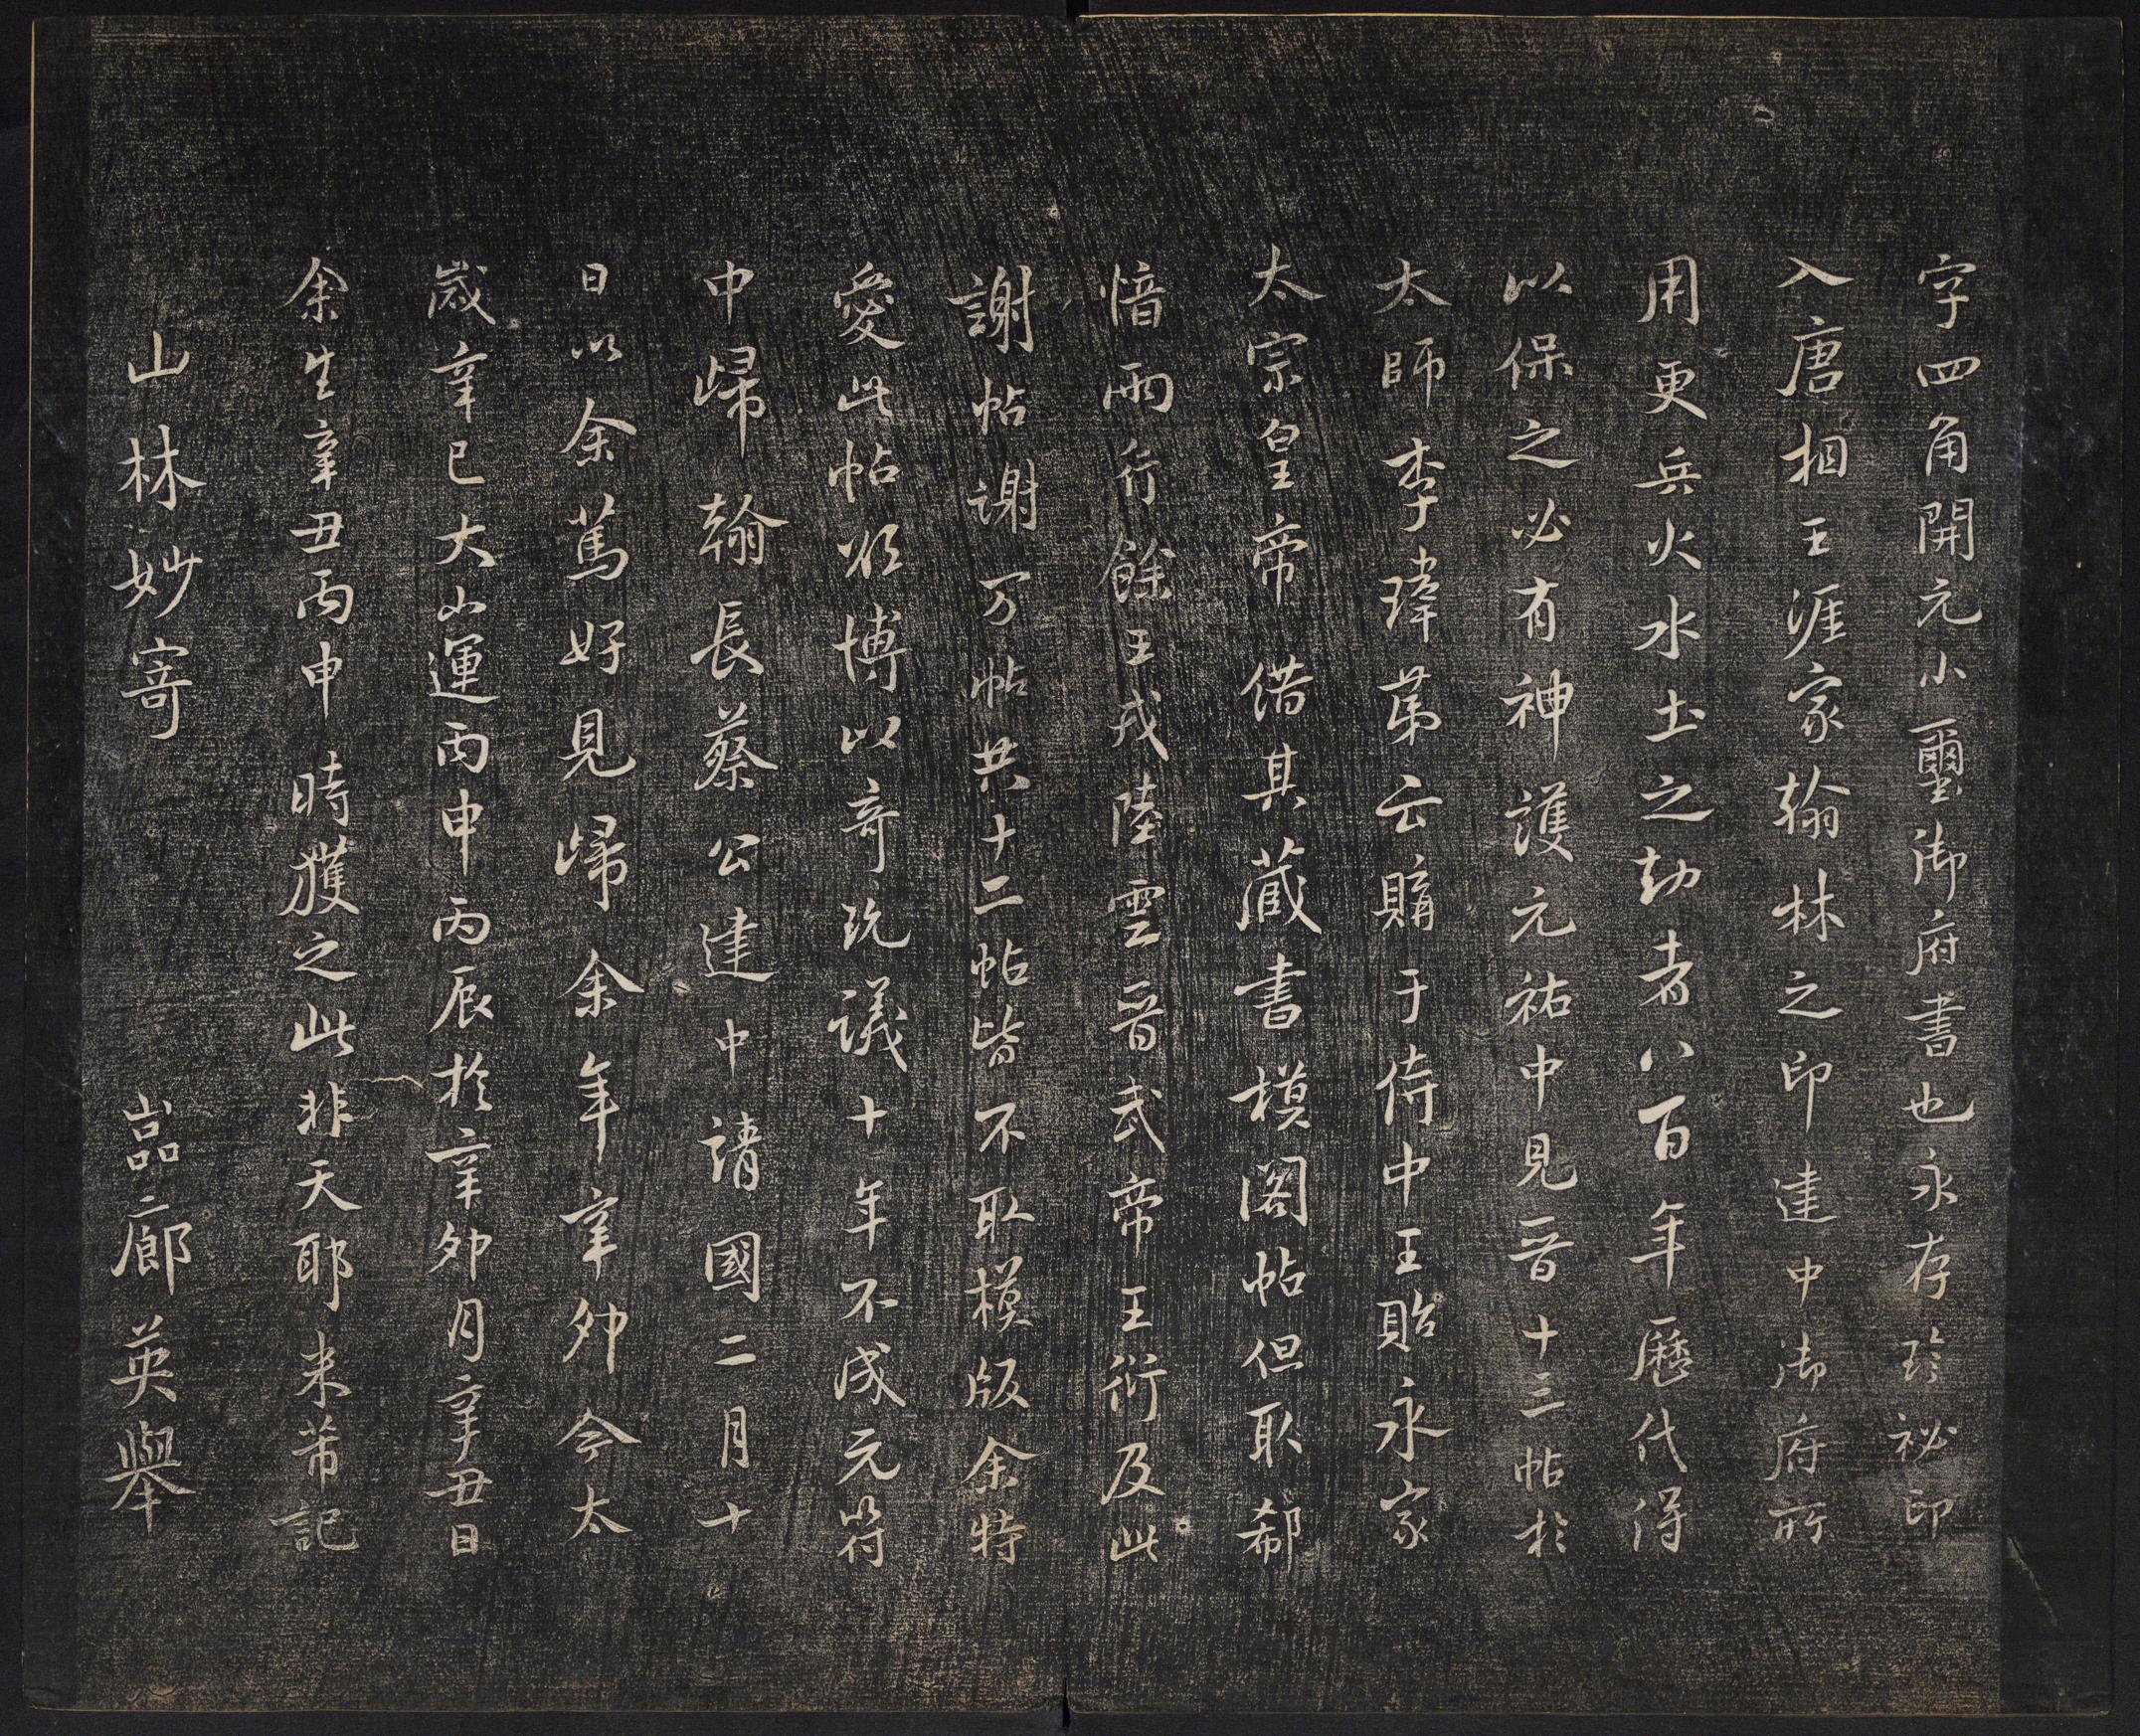 字四角開元小璽御府書也永存珍祕印
入唐相王涯家翰林之印建中御府所
用更兵火水土之劫者八百年歷代得
以保之必有神護元祐中見晉十三帖於
太師李瑋第云購于侍中王貽永家
太宗皇帝借其藏書模閣帖但取郗
愔兩行餘王戎陸雲晉武帝王衍及此
謝帖謝万帖共十二帖皆不取模版余特
愛此帖欲博以奇玩議十年不成元符
中歸翰長蔡公建中請國二月十
日以余篤好見歸余年辛卯今太
歲辛巳大小運丙申丙辰於辛卯月辛丑日
余生辛丑丙申時獲之此非天耶米芾記
山林妙寄
嵓廊英舉